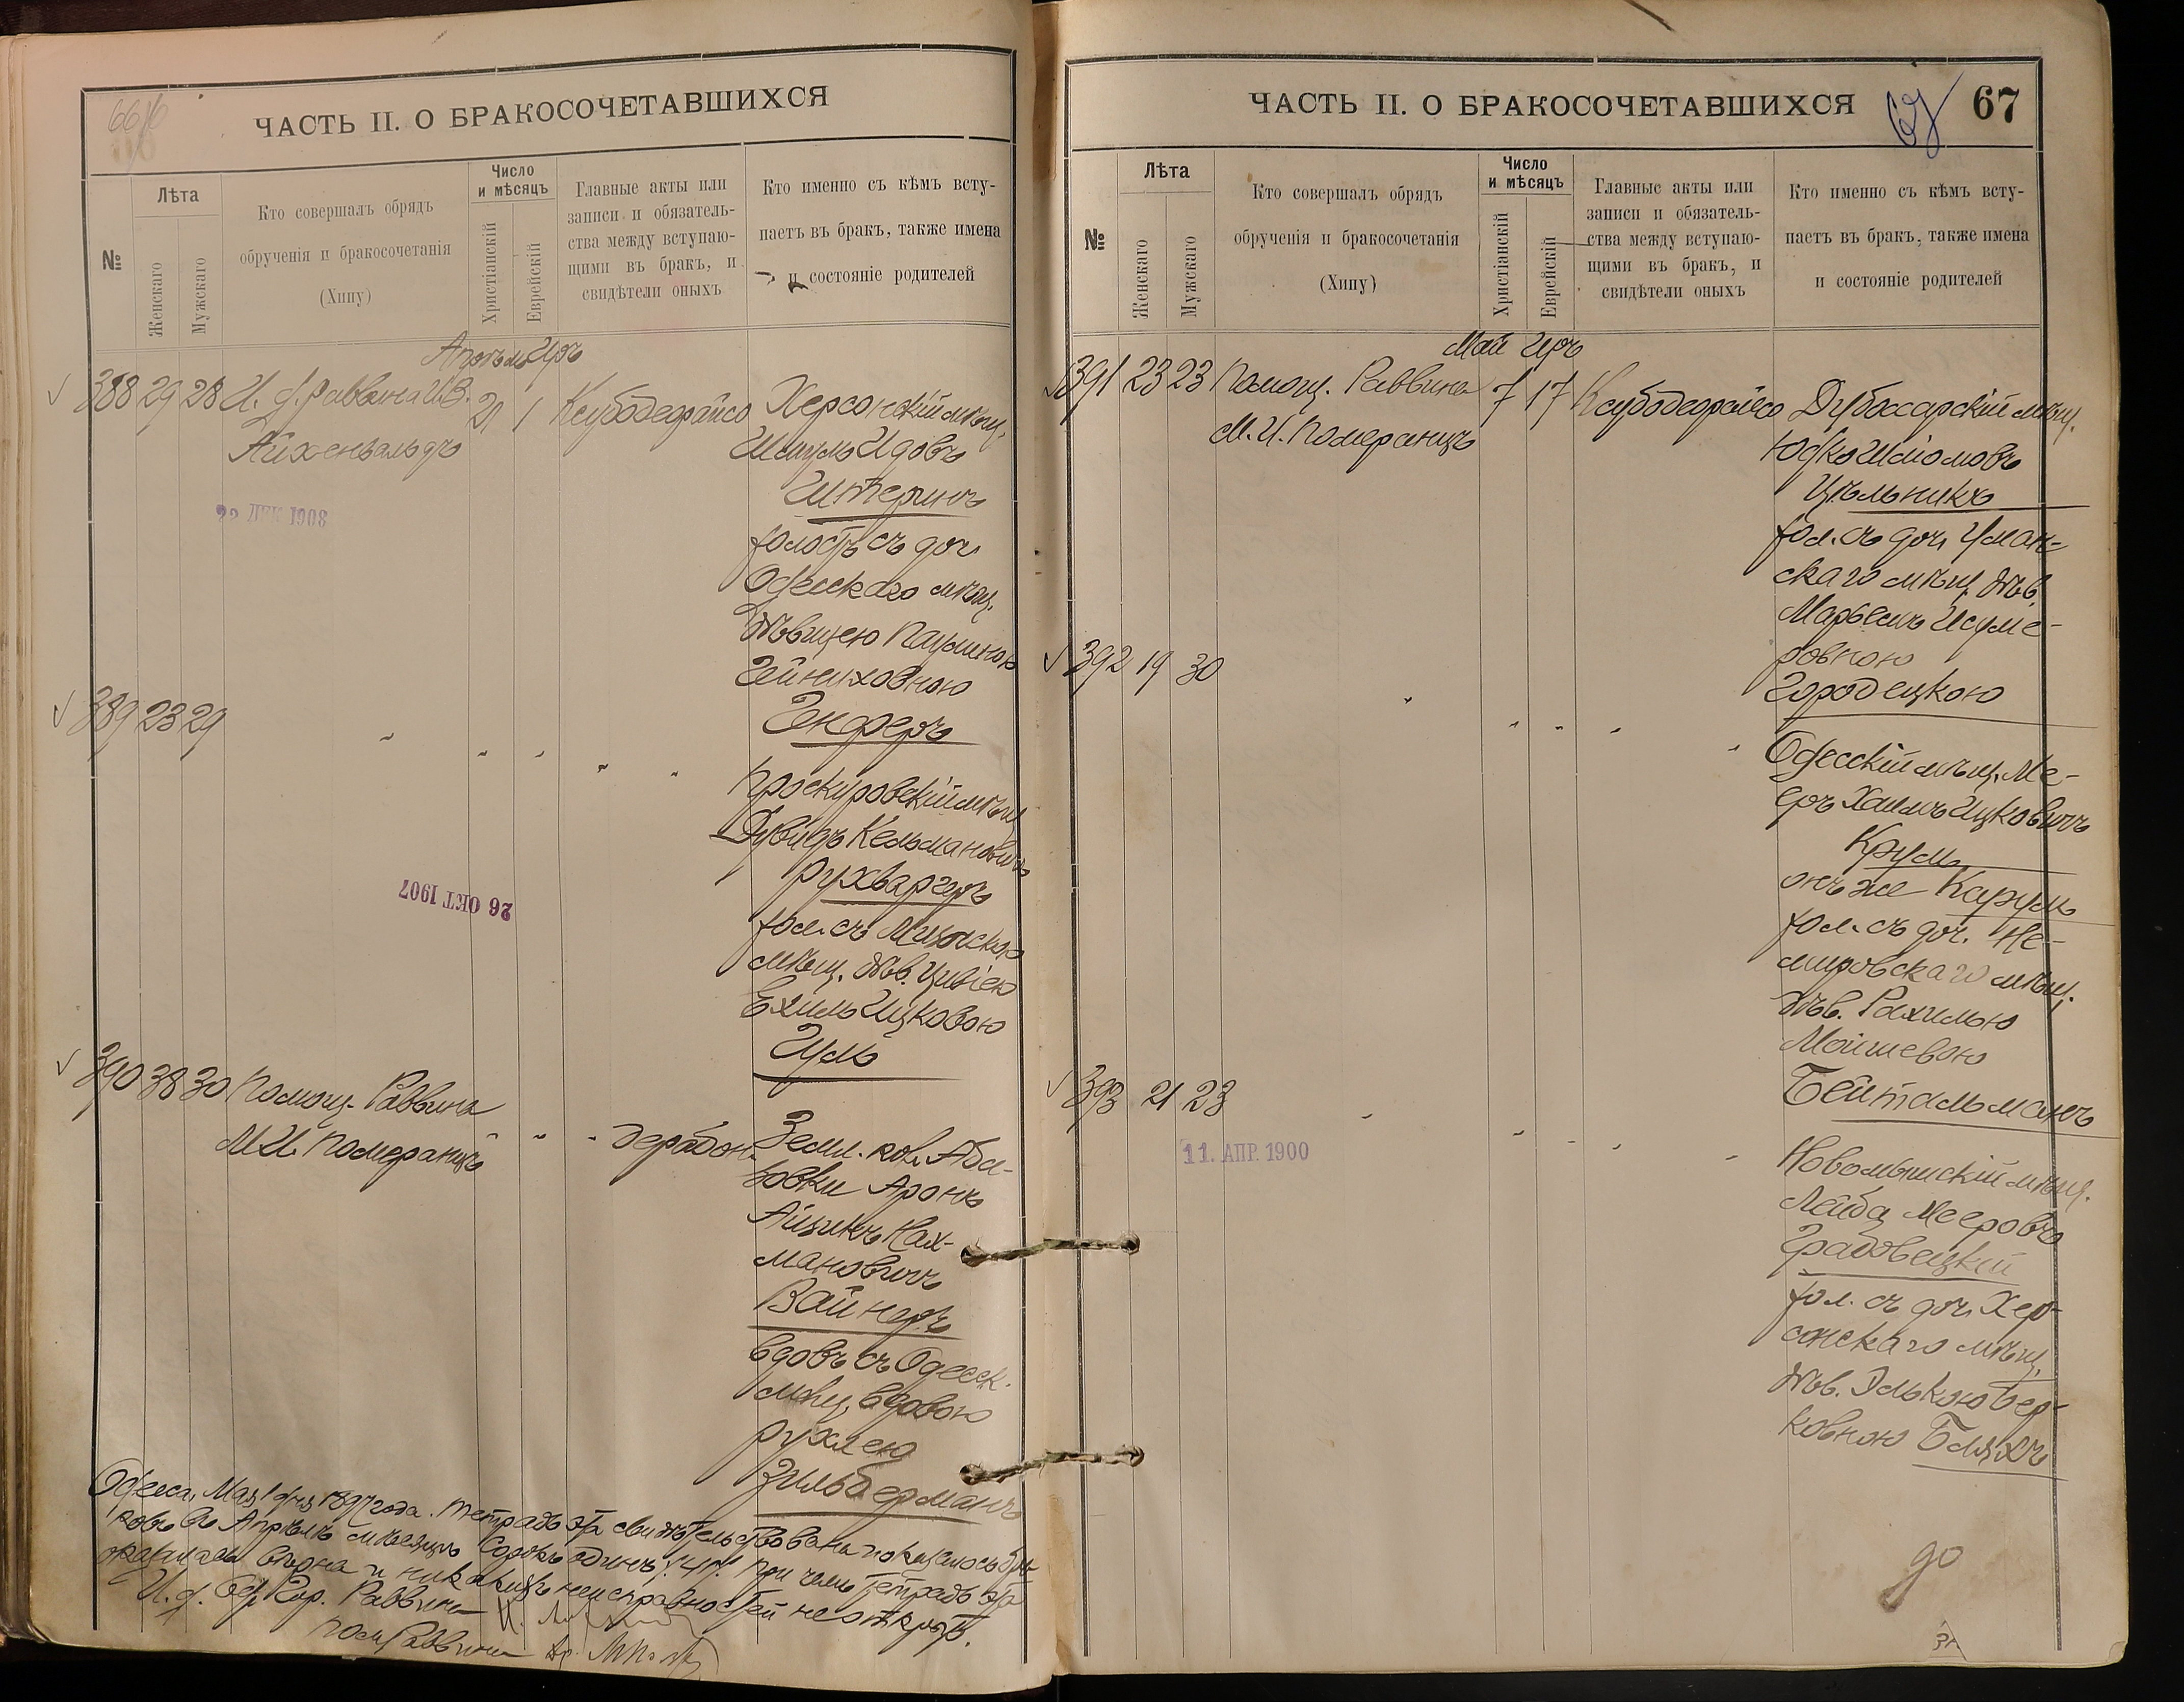 ЧАСТЬ II. О БРАКОСОЧЕТАВШИХСЯ
№
Лѣта
Женскаго
Мужскаго
Кто совершалъ обрядъ
обрученія и бракосочетанія
(Хипу)
Число
и мѣсяцъ
Христіанскій
Еврейскій
Главные акты или
записи и обязатель-
ства между вступаю-
щими въ бракъ, и
свидѣтели оныхъ
Кто именно съ кѣмъ всту-
паетъ въ бракъ, также имена
и состояніе родителей
Апрѣль Иръ
388 29 28 И. д. раввина И.В. 21 1 Ксубодеорайсо Херсонскій мѣщ.
Айхенвальдъ Шмуль Идовъ
Штернъ
22 ДЕК 1908
холостъ съ доч.
Одесскаго мѣщ.
дѣвицею Паулиною
Гейниховною
389 23 29
Генферъ
Проскуровскій мѣщ
Дувидъ Кельмановичъ
Рухваргеръ
26 ОКТ 1907
хол. съ
мѣщ. дѣв. Цивіею
Ехиль Ицковою
Гуль
390 38 30 Помощ. Раввина
М.И. Померанцъ дерабон. Земл. кол. Аба-
зовки Аронъ
Айзикъ Нах-
мановичъ
Вайнеръ
вдовъ съ Одесск.
мѣщ. вдовою
Рухлею
Зильберманъ
Одесса, Мая 1 дня 1897 года. Тетрадь эта свидѣтельствована показалось бра-
ковъ въ Апрѣлѣ мѣсяцѣ Сорокъ одинъ "41" При чемъ тетрадь эта
оказалась вѣрна и никакихъ неисправностей не открыто.
И. д. Од. Гор. Раввина
Пом. Раввина
ЧАСТЬ II. О БРАКОСОЧЕТАВШИХСЯ
67
№
Лѣта
Женскаго
Мужскаго
Кто совершалъ обрядъ
обрученія и бракосочетанія
(Хипу)
Число
и мѣсяцъ
Христіанскій
Еврейскій
Главные акты или
записи и обязатель-
ства между вступаю-
щими въ бракъ, и
свидѣтели оныхъ
Кто именно съ кѣмъ всту-
паетъ въ бракъ, также имена
и состояніе родителей
Май Иръ
391 23 23 Помощ. Раввина 7 17 Ксубодеорайсо Дубоссарскій мѣщ.
М.И. Померанцъ Юдко Шліомовъ
Цѣльникъ
хол. съ доч. Уман-
скаго мѣщ. дѣв.
Марьемъ Исуме-
ровною
392 19 30
Городецкою
Одесскій мѣщ. Ме-
еръ Хаимъ Ицковичъ
Крумъ
онъ же Карумъ
хол. съ доч. Не-
мировскаго мѣщ.
дѣв. Рахилью
Мойшевою
Бейтельманъ
393 21 23
11. АПР. 1900
Новомышскій мѣщ.
Лейба Мееровъ
Грабовецкій
хол. съ доч. Хер-
сонскаго мѣщ.
дѣв. Элькою Бер-
ковною Бляхъ